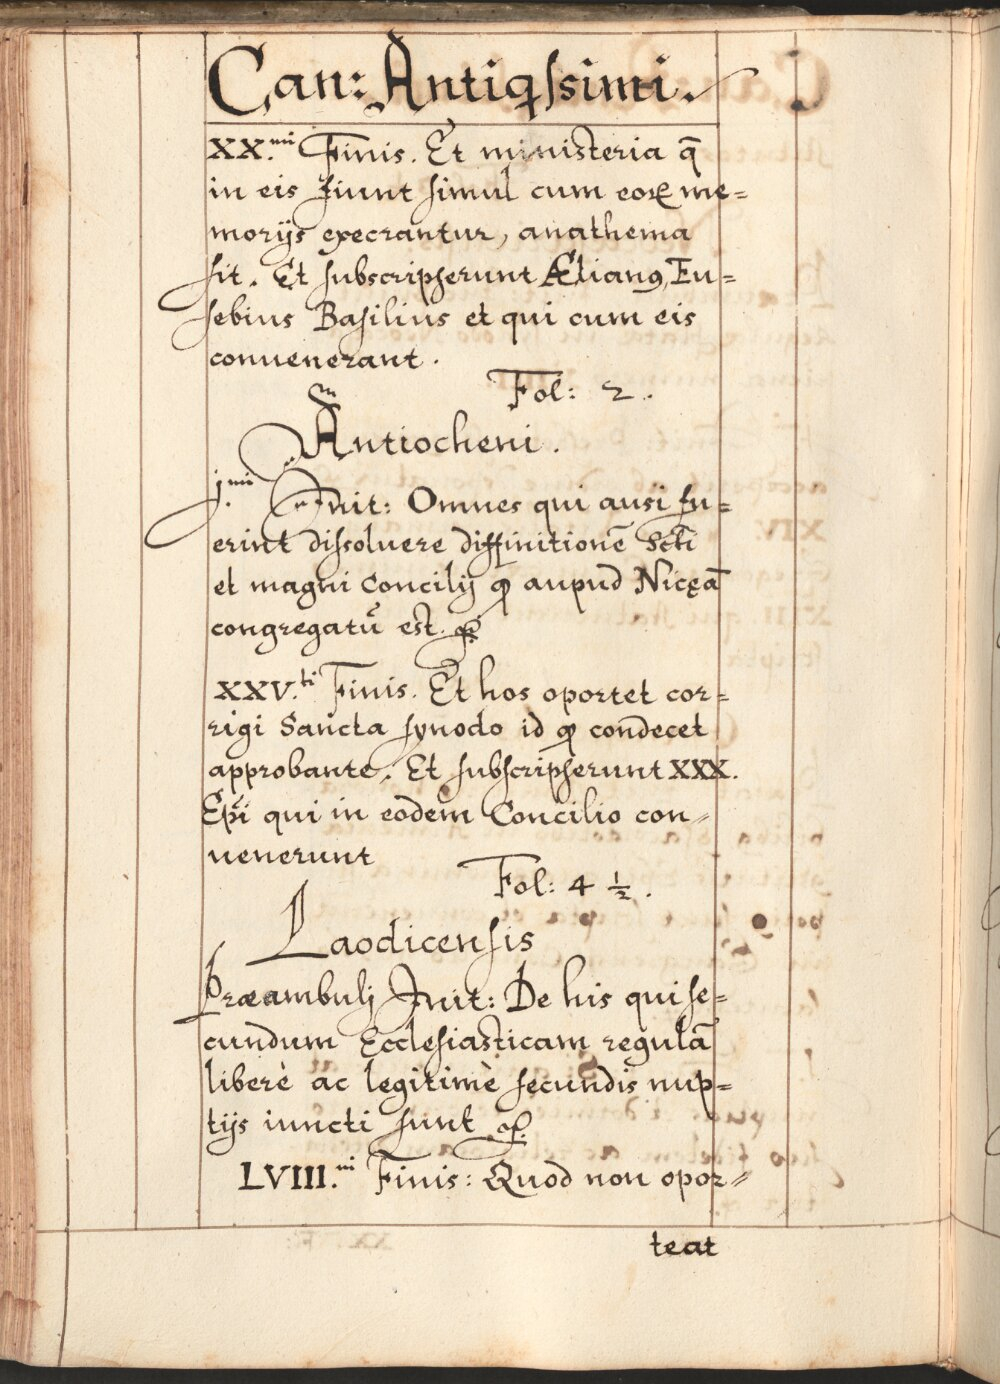 Can: Antiqssimi.
XX.mi Finis. Et ministeria q̄
in eis fiunt simul cum eoꝝ me=
morijs execrantur, anathema
sit. Et subscripserunt Ælianꝰ, Eu=
sebius Basilius et qui cum eis
conuenerant.
Fol: 2.
Antiocheni.
j.mi Init: Omnes qui ausi fu=
erint dissoluere diffinitionē Sctī
et magni Concilij qđ aupud Nicęā
congregatū est. &.
XXV.ti Finis. Et hos oportet cor=
rigi Sancta synodo id qđ condecet
approbante. Et subscripserunt XXX.
Epī qui in eodem Concilio con=
uenerunt
Fol: 4 ½.
Laodicensis
Præambulj Init: De his qui se=
cundum Ecclesiasticam regulā
liberè ac legitimè secundis nup=
tijs iuncti sunt &.
LVIII.mi Finis: Quod non opor=
teat